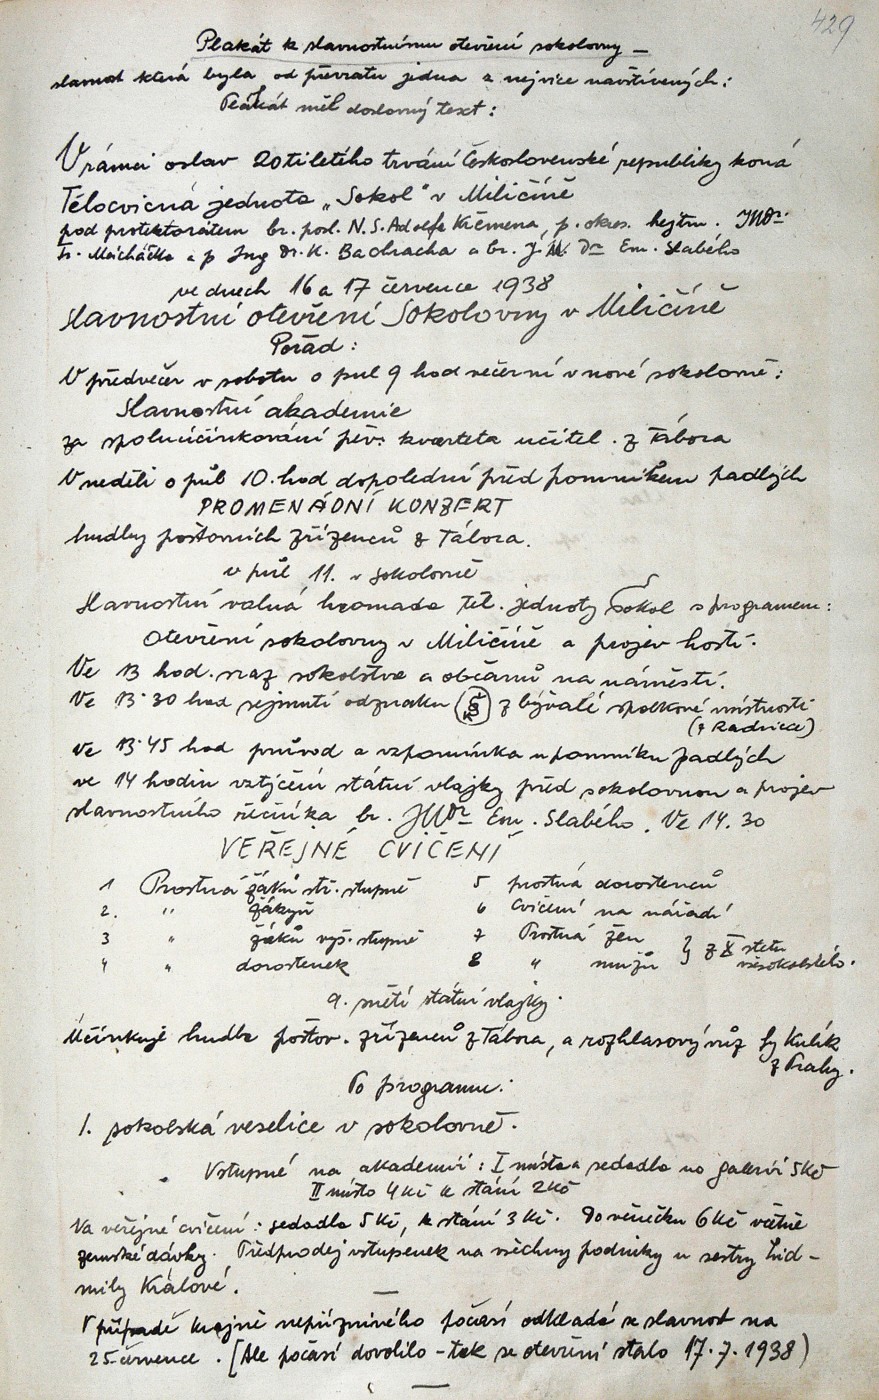 429
Plakát k slavnostnímu otevření sokolovny –
slavnost která byla od převratu jedna z nejvíce navštívených:
Plakát měl doslovný text:
V rámci oslav 20tiletého trvání Československé republiky koná
Tělocvičná jednota „Sokol" v Miličíně
pod protektorátem br. posl. N.S. Adolfa Křemena, p. okres. hejtm. JUDr.
Fr. Macháčka a p Ing Dr. K. Bachracha a br. JU. Dr Em. Slabého
ve dnech 16 a 17 července 1938
Slavnostní otevření Sokolovny v Miličíně
Pořad:
V předvečer v sobotu o půl 9 hod večerní v nové sokolovně:
Slavnostní akademie
za spoluúčinkování pěv. kvarteta učitel. z Tábora
V neděli o půl 10. hod dopolední před pomníkem padlých
PROMENÁDNÍ KONZERT
hudby poštovních zřízenců z Tábora.
v půl 11. v sokolovně
Slavnostní valná hromada těl. jednoty Sokol s programem:
Otevření sokolovny v Miličíně a projev hostí.
Ve 13 hod. sraz sokolstva a občanů na náměstí.
Ve 13·30 hod sejmutí odznaku z bývalé spolkové místnosti
(z Radnice)
ve 13·45 hod průvod a vzpomínka u pomníku padlých
ve 14 hodin vztýčení státní vlajky před sokolovnou a projev
slavnostního řečníka br. JUDr Em. Slabého. Ve 14.30
VEŘEJNÉ CVIČENÍ
1 Prostná žáků stř. stupně 5 prostná dorostenců
2. " žákyň 6 Cvičení na nářadí
3 " žáků vyš. stupně 7 Prostná žen
4 " dorostenek 8 " mužů } z X sletu všesokolského.
9. snětí státní vlajky.
Účinkuje hudba poštov. zřízenců z Tábora, a rozhlasový vůz fy Kulík
z Prahy.
Po programu:
1. sokolská veselice v sokolovně.
Vstupné na akademii: I místa a sedadla na galerii 5Kč
II místo 4 Kč k stání 2Kč
Na veřejné cvičení: sedadla 5 Kč, k stání 3 Kč. Do věnečku 6 Kč včetně
zemské dávky. Předprodej vstupenek na všechny podniky u sestry Lid-
mily Králové.
V případě krajně nepříznivého počasí odkládá se slavnost na
25 července. [Ale počasí dovolilo – tak se otevření stalo 17.7.1938)